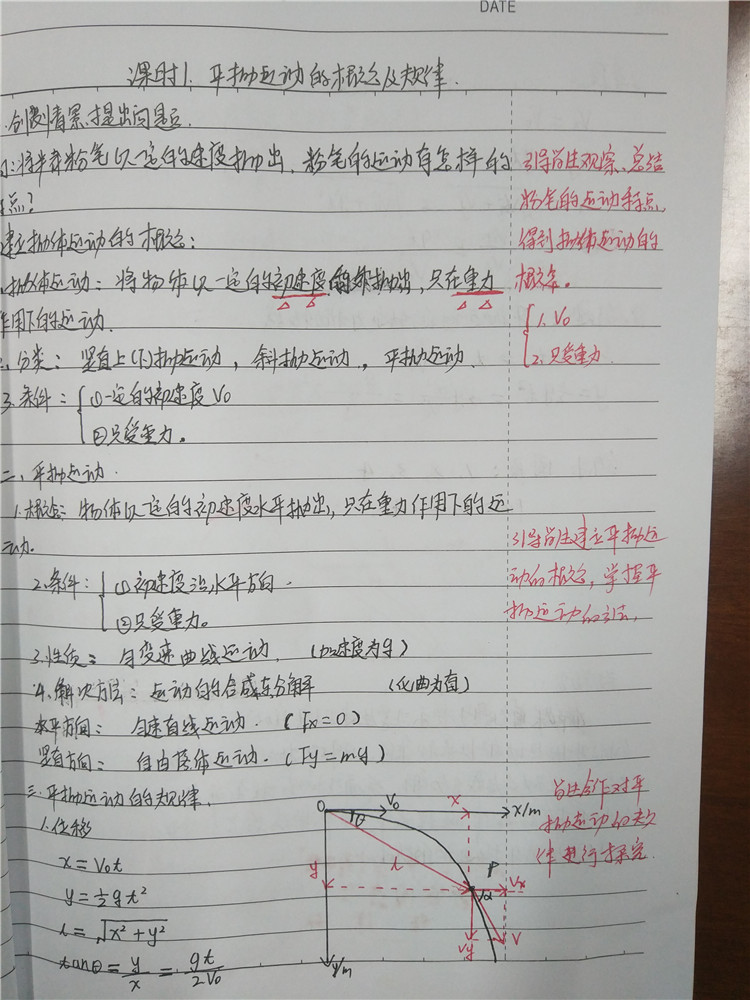 DATE
课时1. 平抛运动的概念及规律.
创设情景,提出问题.
将半截粉笔以一定的速度抛出,粉笔的运动有怎样的
点?
建立抛体运动的概念:
抛体运动:将物体以一定的初速度 抛出,只在重力
作用下的运动.
分类:竖直上(下)抛运动,斜抛运动,平抛运动.
3.条件:①一定的初速度V0
②只受重力。
二、平抛运动.
1.概念:物体以一定的初速度水平抛出,只在重力作用下的运
动.
2.条件:①初速度沿水平方向.
②只受重力。
3.性质:匀变速曲线运动.(加速度为g)
4.解决方法:运动的合成与分解 (化曲为直)
水平方向:匀速直线运动.(Fx=0)
竖直方向:自由落体运动.(Fy=mg)
三.平抛运动的规律.
1.位移
x=V0t
y=½gt²
l=√x²+y²
tanθ=y/x=gt/2V0
引导学生观察、总结
粉笔的运动特点,
得到抛体运动的
概念。
1.V0
2.只受重力.
引导学生建立平抛运
动的概念,掌握平
抛运动的
学生合作对平
抛运动的规
律进行探究
O
V0
x
x/m
θ
y
l
P
Vx
α
Vy
V
y/m